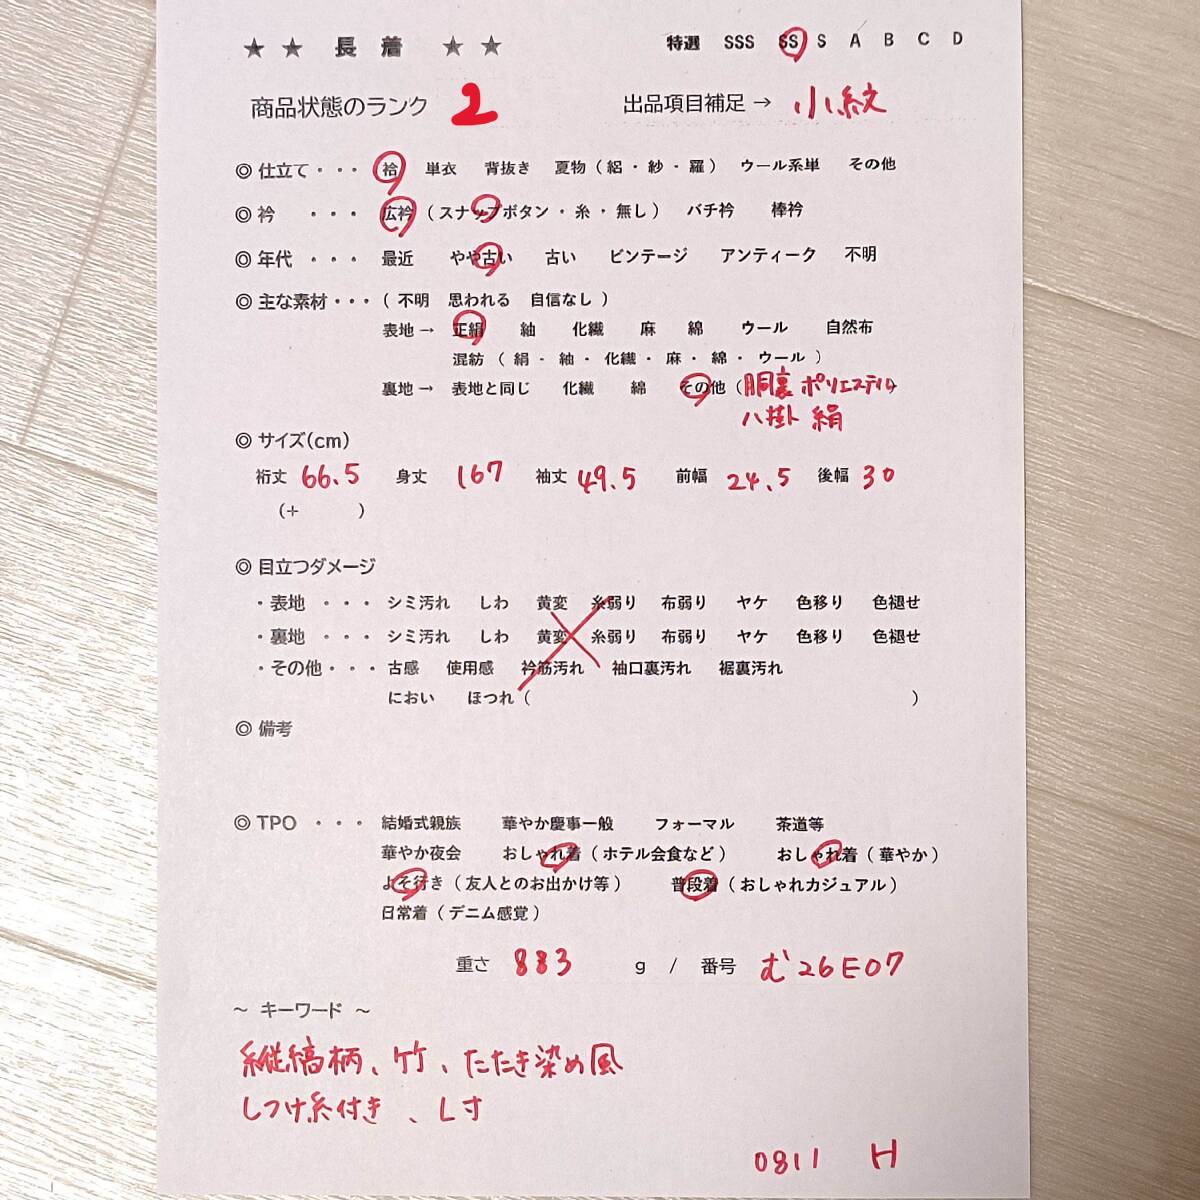 ★ ★ 長 着 ★ ★ 特選 SSS SS S A B C D
商品状態のランク 2 出品項目補足 → 小紋
◎ 仕立て ・・・ 袷 単衣 背抜き 夏物（ 絽 ・ 紗 ・ 羅 ） ウール系単 その他
◎ 衿 ・・・ 広衿 （ スナップボタン ・ 糸 ・ 無し ） バチ衿 棒衿
◎ 年代 ・・・ 最近 やや古い 古い ビンテージ アンティーク 不明
◎ 主な素材・・・ （ 不明 思われる 自信なし ）
表地 → 正絹 紬 化繊 麻 綿 ウール 自然布
混紡 （ 絹 ・ 紬 ・ 化繊 ・ 麻 ・ 綿 ・ ウール ）
裏地 → 表地と同じ 化繊 綿 その他（ 胴裏 ポリエステル
八掛 絹
◎ サイズ(cm)
裄丈 66.5 身丈 167 袖丈 49.5 前幅 24.5 後幅 30
(+ )
◎ 目立つダメージ
・表地 ・・・ シミ汚れ しわ 黄変 糸弱り 布弱り ヤケ 色移り 色褪せ
・裏地 ・・・ シミ汚れ しわ 黄変 糸弱り 布弱り ヤケ 色移り 色褪せ
・その他・・・ 古感 使用感 衿筋汚れ 袖口裏汚れ 裾裏汚れ
におい ほつれ（ ）
◎ 備考
◎ TPO ・・・ 結婚式親族 華やか慶事一般 フォーマル 茶道等
華やか夜会 おしゃれ着（ ホテル会食など ） おしゃれ着（ 華やか ）
よそ行き（ 友人とのお出かけ等 ） 普段着（ おしゃれカジュアル ）
日常着（ デニム感覚 ）
重さ 883 g / 番号 む26E07
～ キーワード ～
縦縞柄、竹、たたき染め風
しつけ糸付き、L寸
0811 H